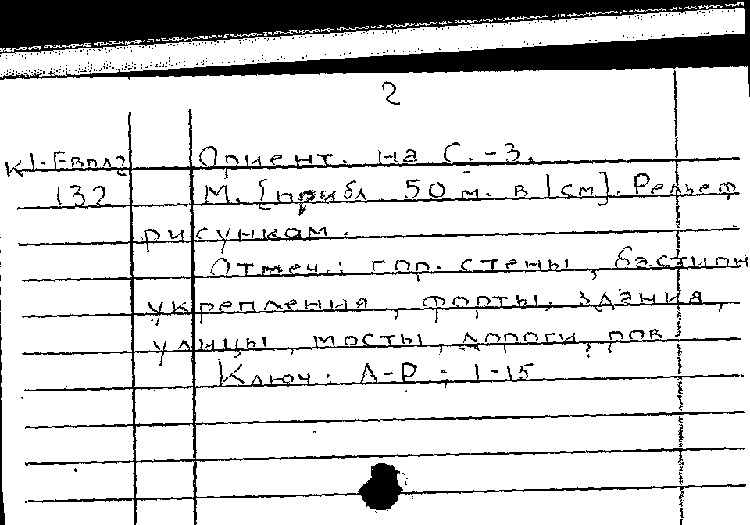 2
К1-Евпл2 Ориент. на С.-З.
132 М. [прибл. 50 м. в 1 см]. Рельеф
рисунком.
Отмеч.: гор. стены, бастион
укрепления, форты, здания,
улицы, мосты, дороги, ров
Ключ: А-Р; 1-15